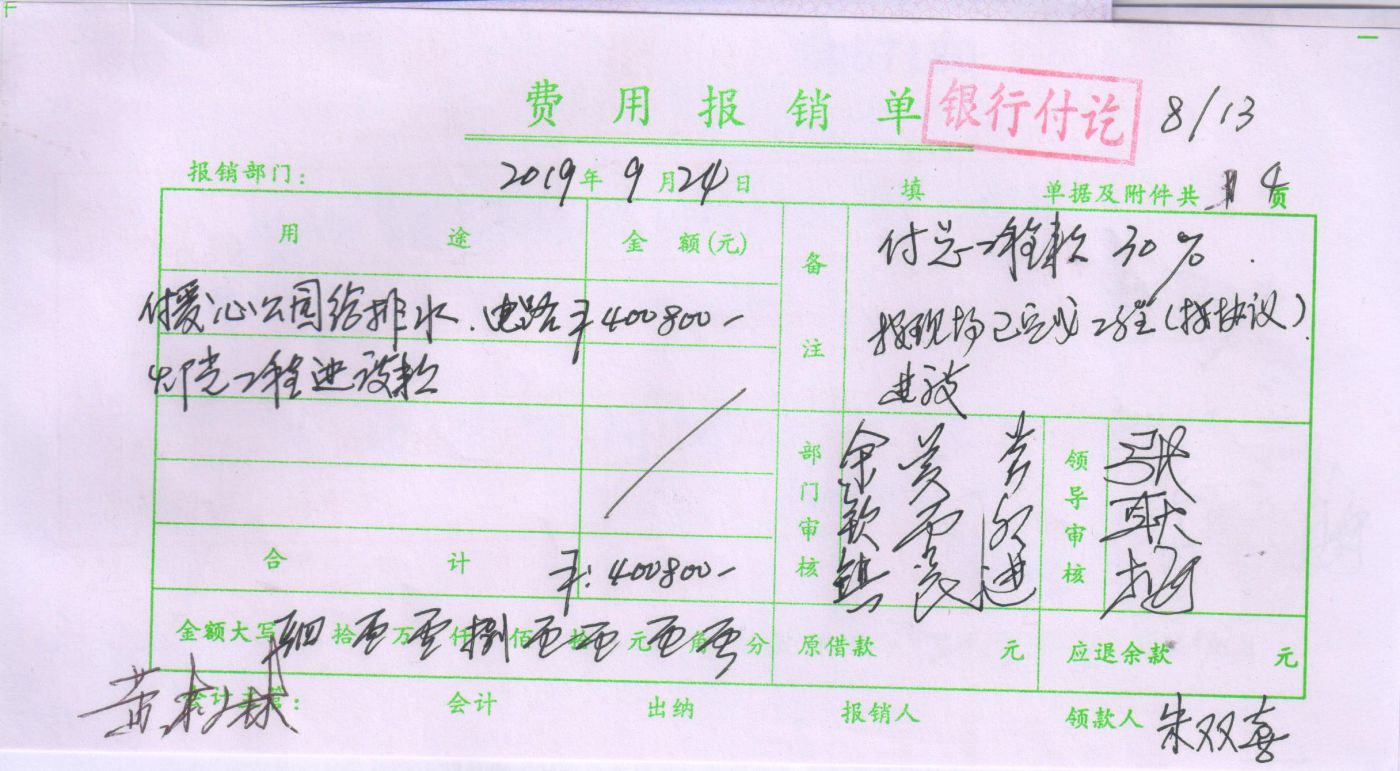 费用报销单 银行付讫 8/13
报销部门： 2019年 9月24日 填 单据及附件共 4 页
用途 金额(元) 备注 付总工程款30%.
付爱心公园给排水、电路 ¥400800- 按现场已完成工程(按协议)
工程进设款 进设
合计 ¥:400800- 部门审核 余钦镇 领导审核 张联旭
金额大写 肆拾零万零仟捌佰零拾零元零角零分 原借款 元 应退余款 元
会计主管： 会计 出纳 报销人 领款人 朱双喜